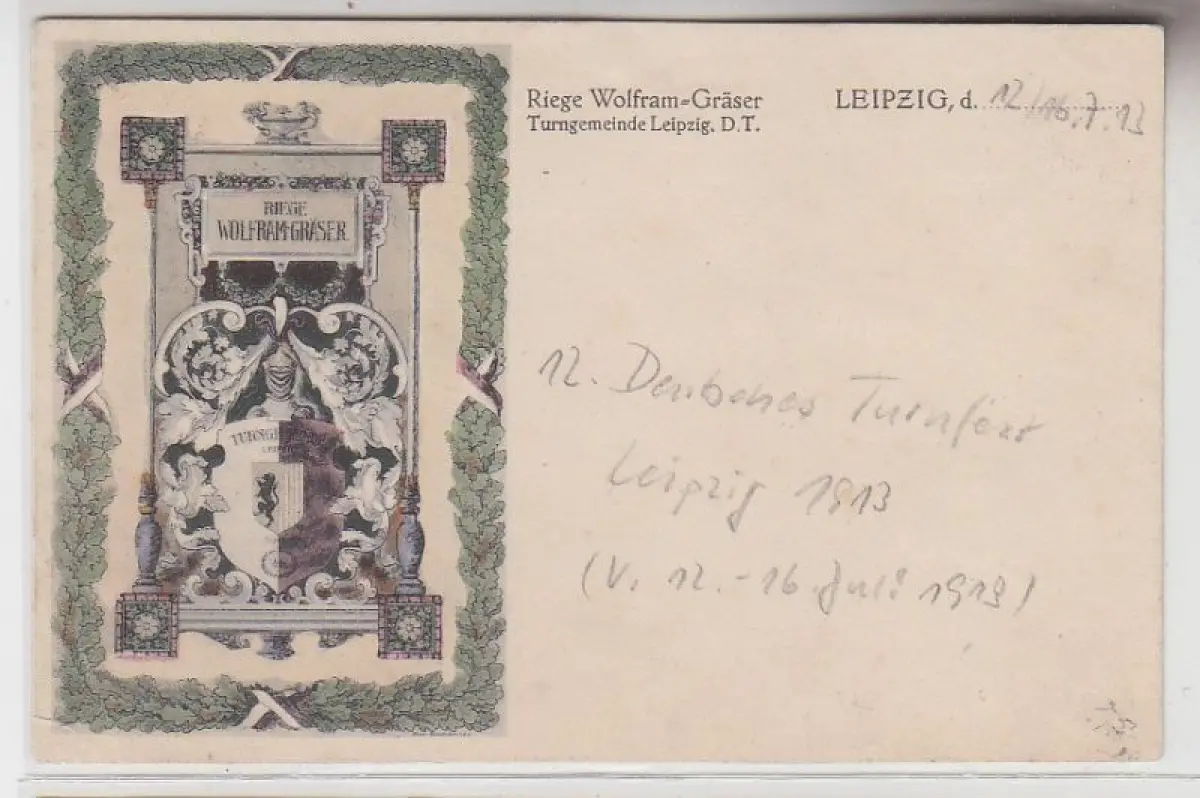 Riege Wolfram-Gräser
Turngemeinde Leipzig. D.T.
LEIPZIG, d. 12/16.7.13
RIEGE
WOLFRAM-GRÄSER
12. Deutsches Turnfest
Leipzig 1913
(V. 12.-16. Juli 1913)